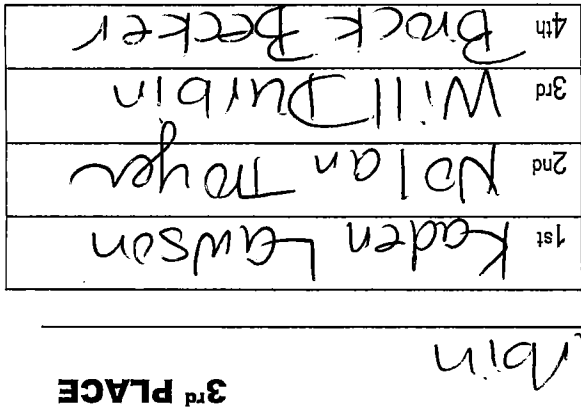 3rd PLACE
1st Kaden Lawson
2nd Nolan Troyer
3rd Will Durbin
4th Brock Becker